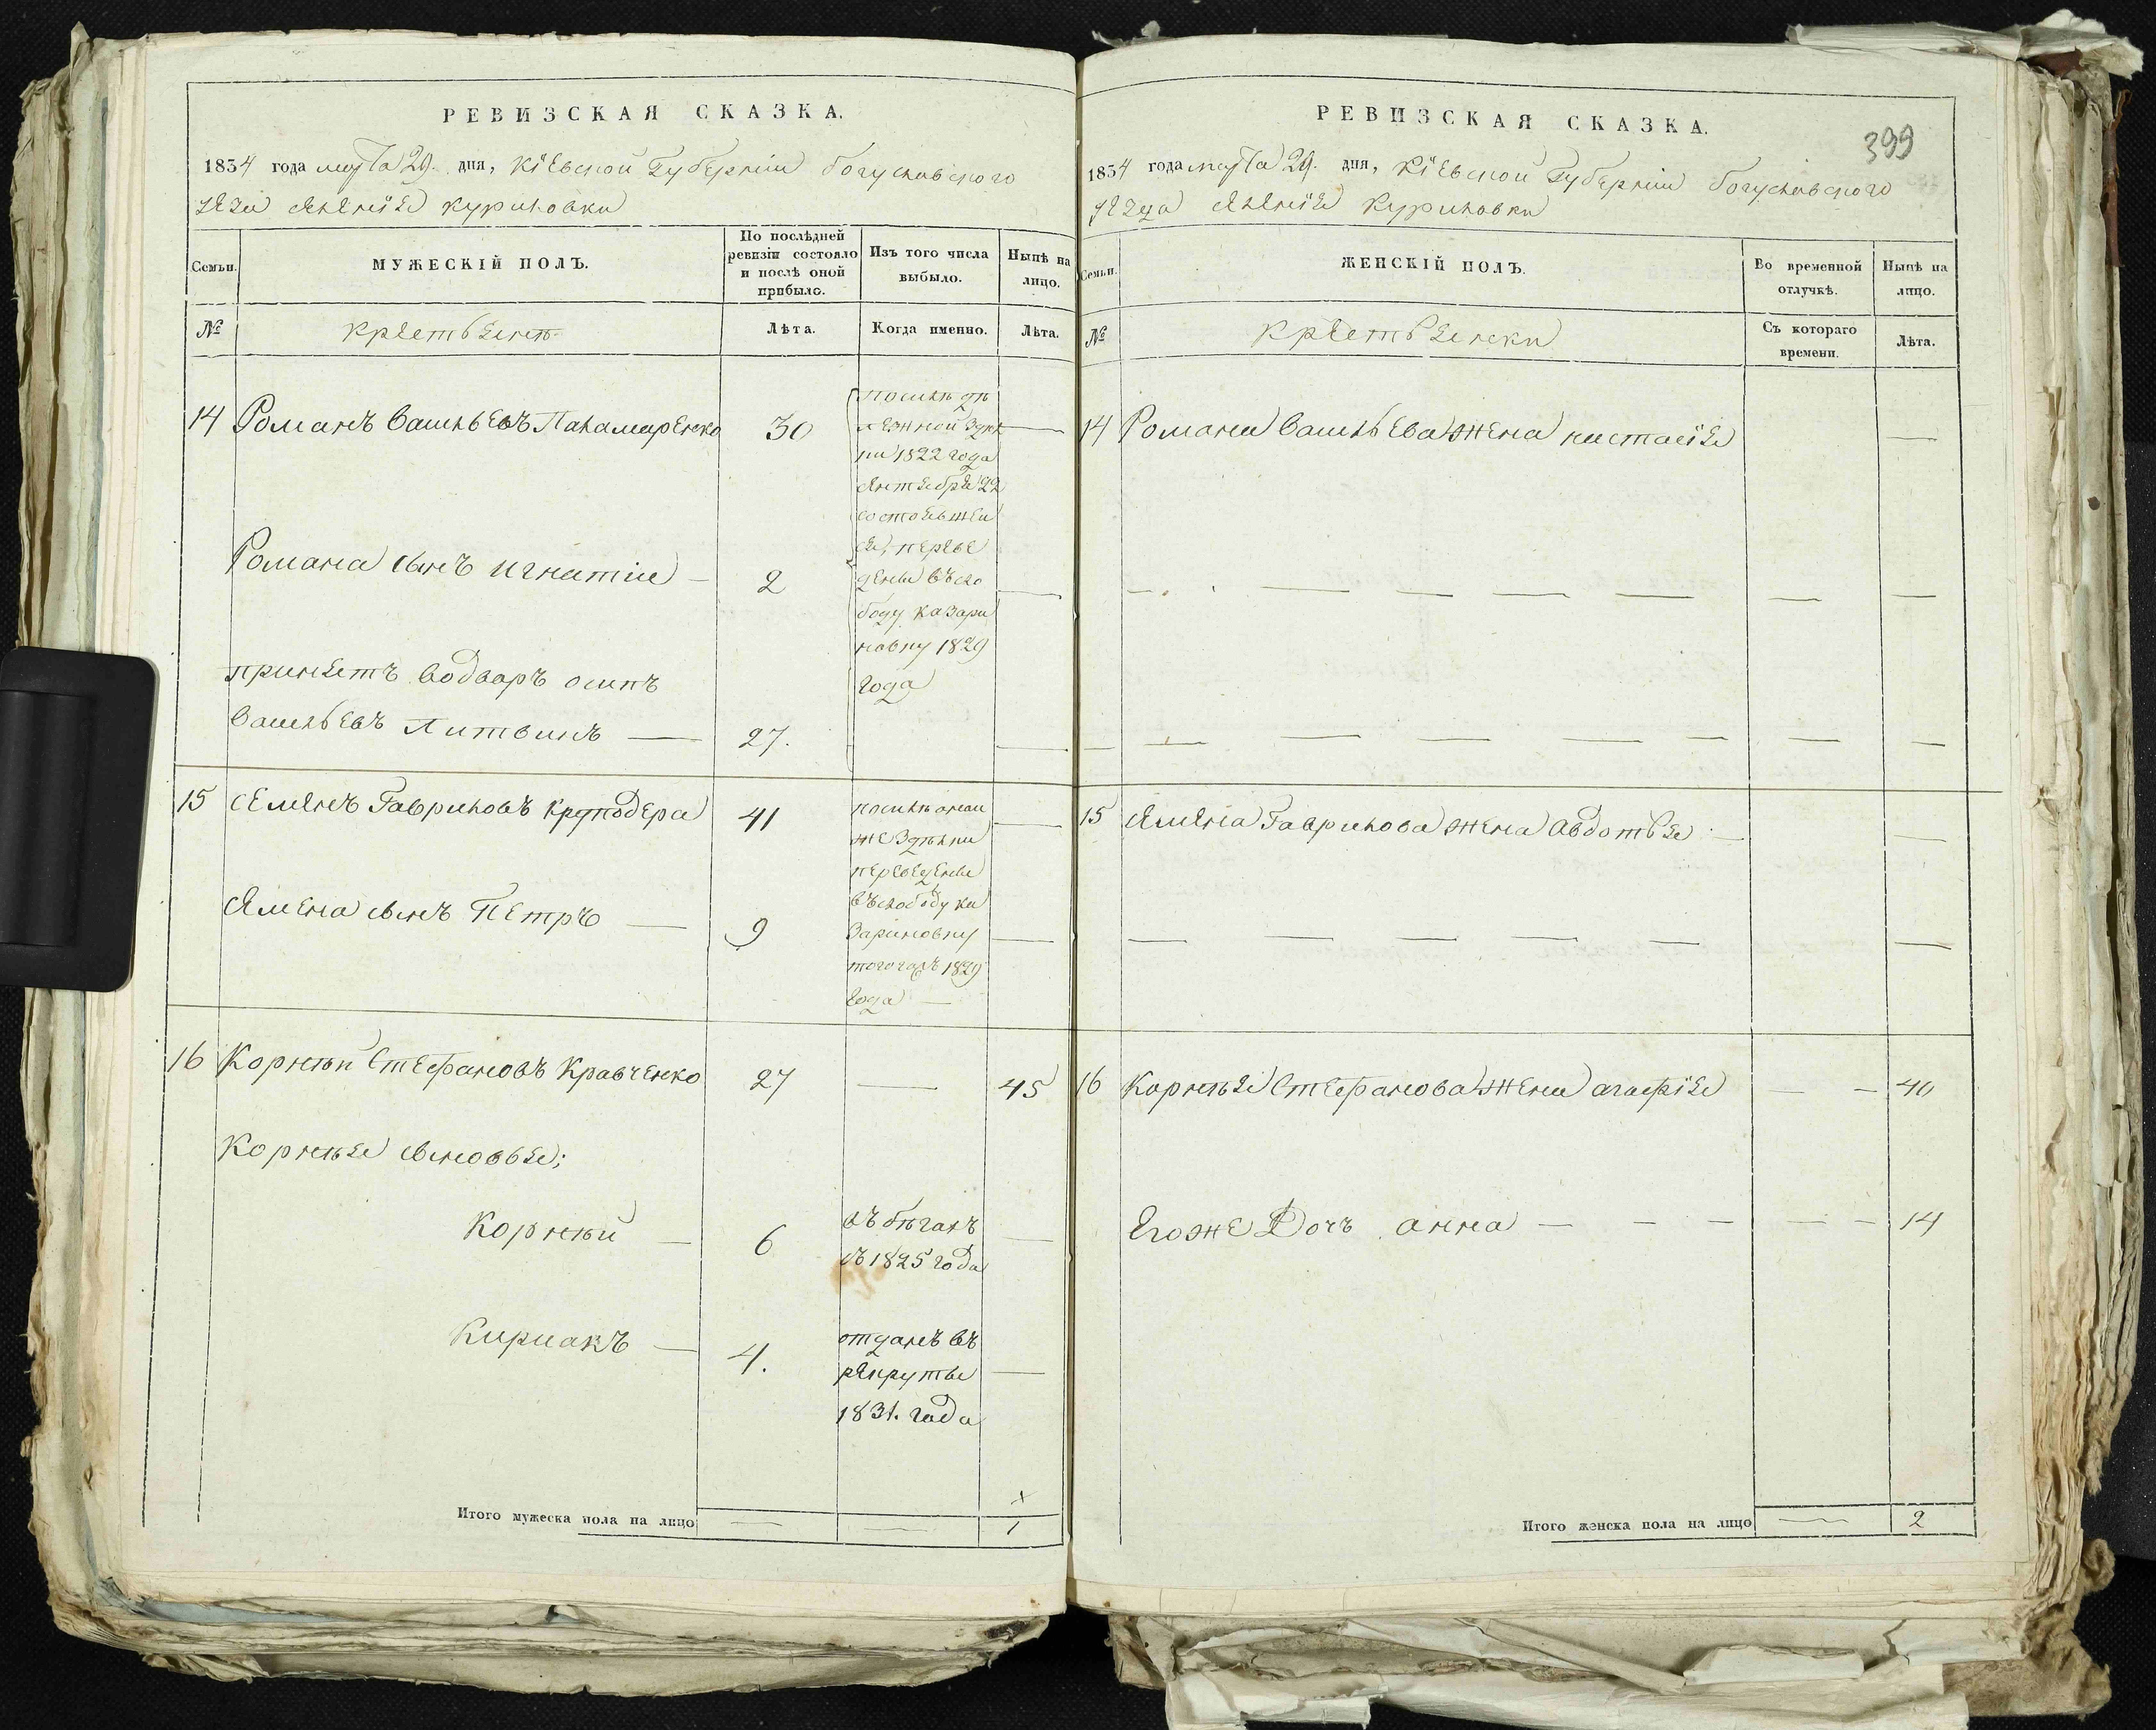 РЕВИЗСКАЯ СКАЗКА.
1834 года марта 29. дня, Кіевской Губерніи Богуславского
селенія Куриловки
Семьи.
МУЖЕСКІЙ ПОЛЪ.
По послѣдней ревизіи состояло и послѣ оной прибыло.
Изъ того числа выбыло.
Нынѣ на лицо.
№
крестьяне
Лѣта.
Когда именно.
Лѣта.
14 Романъ Васильевъ Панамаренко 30
1822 года
сентября 22
переве
дены въ сло
боду казари
новку 1829
года
Романа сынъ игнатій — 2
принятъ водворъ осипъ
Васильевъ Литвинъ — 27.
15 Семенъ Гавриловъ круподера 41
переведены
въ слободу ка
зариновку
1829
года —
Семена сынъ Петръ — 9
16 Корнѣй Стефановъ Кравченко 27 — 45
Корнѣя сыновья;
Корнѣй — 6
въ бѣгахъ
съ 1825 года
Кириакъ — 4.
отданъ въ
рекруты
1831. года
Итого мужеска пола на лицо — — 1
РЕВИЗСКАЯ СКАЗКА.
399
1834 года марта 29. дня, Кіевской Губерніи Богуславского
уезда селенія Куриловки
Семьи.
ЖЕНСКІЙ ПОЛЪ.
Во временной отлучкѣ.
Нынѣ на лицо.
№
крестьянки
Съ котораго времени.
Лѣта.
14 Романа Васильева жена настасія —
15 Семена Гаврилова жена Авдотья —
16 Корнѣя Стефанова жена агафія — — 40
Егоже Дочъ анна — — — — — 14
Итого женска пола на лицо — 2